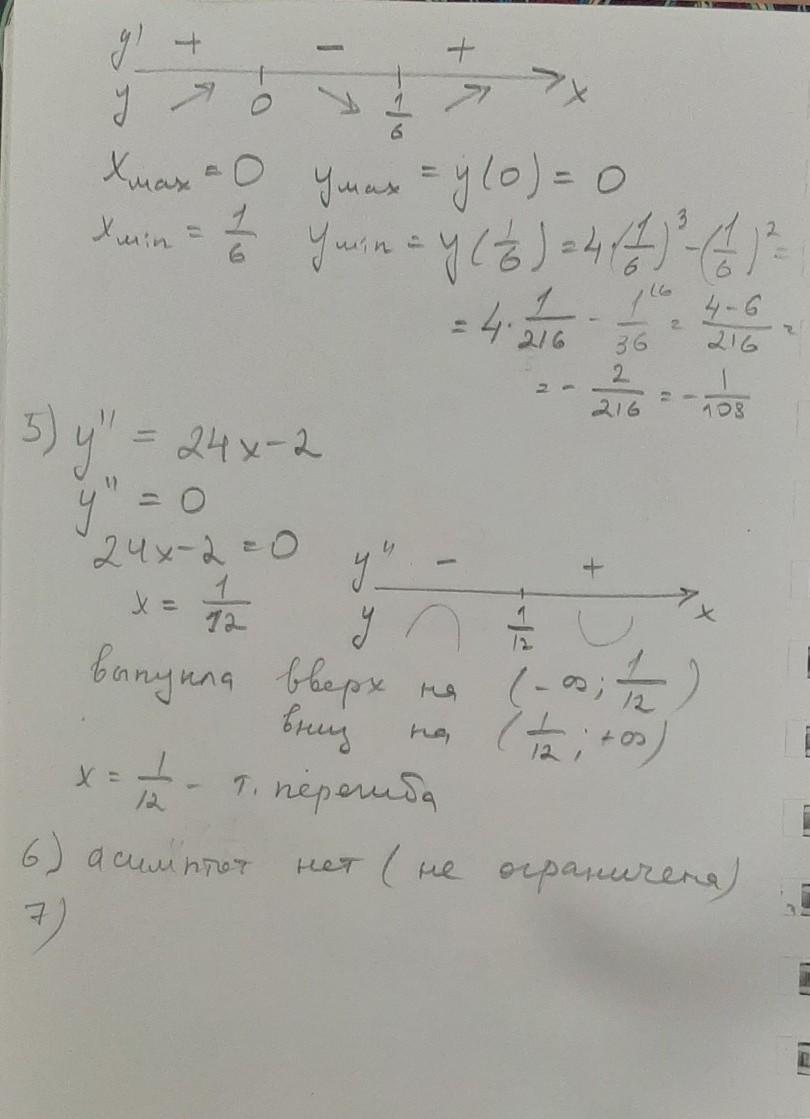 y' + − +
y 0 1/6 x
xmax = 0 ymax = y(0) = 0
xmin = 1/6 ymin = y(1/6) = 4·(1/6)³ − (1/6)² =
= 4·1/216 − 1/36 = 4−6/216 =
= − 2/216 = − 1/108
5) y'' = 24x−2
y'' = 0
24x−2 = 0
x = 1/12
y'' − +
y 1/12 x
выпукла вверх на (−∞; 1/12)
вниз на (1/12; +∞)
x = 1/12 − т. перегиба
6) асимптот нет (не ограничена)
7)